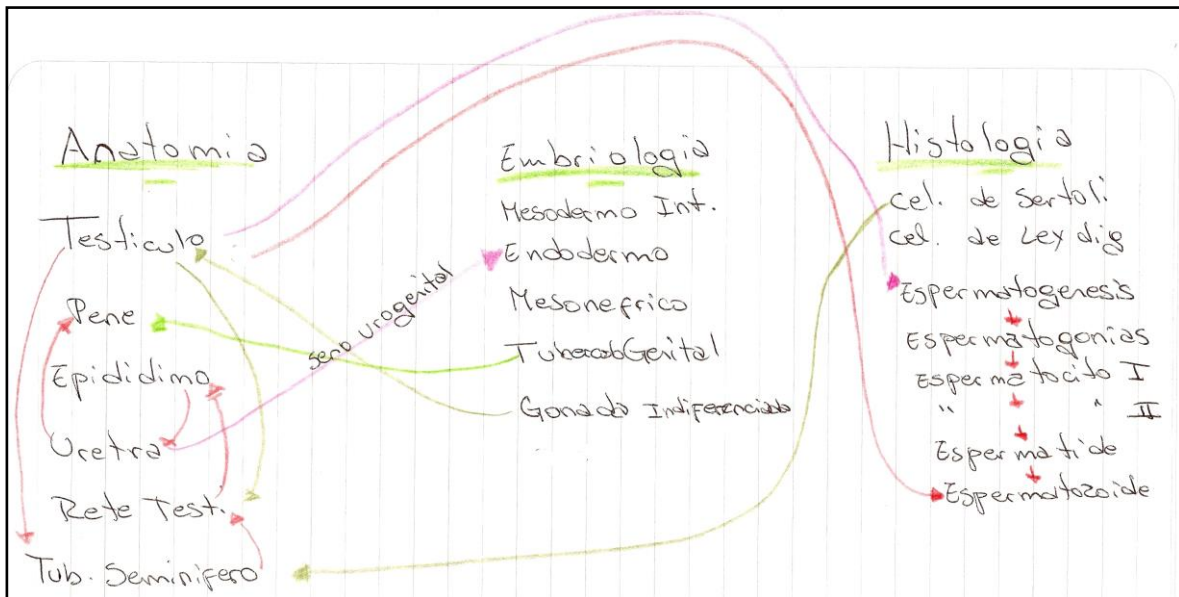 Anatomia
Testiculo
Pene
Epididimo
Uretra
Rete Test.
Tub. Seminifero
Seno Urogenital
Embriologia
Mesodermo Int.
Endodermo
Mesonefrico
Genital
Gonada Indiferenciada
Histologia
Cel. de Sertoli
Cel. de Leydig
Espermatogenesis
Espermatogonias
Espermatocito I
" " II
Espermatide
Espermatozoide